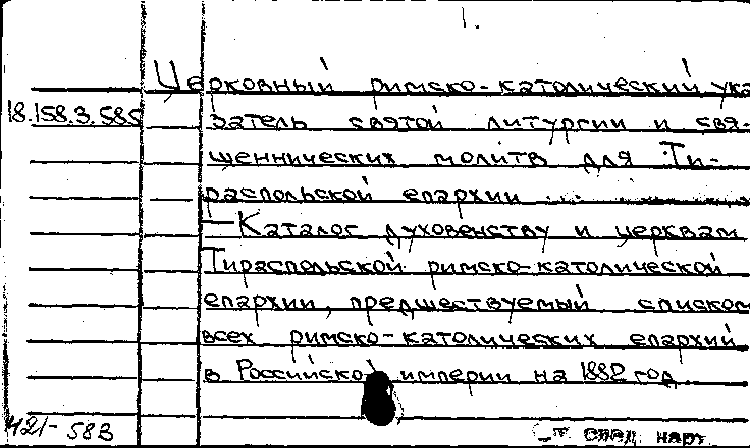 1.
Церковный римско-католический ука
18.158.3.585
затель святой литургии и свя-
щеннических молитв для Ти-
распольской епархии
— Каталог духовенству и церквам
Тираспольской римско-католической
епархии, предшествуемый списком
всех римско-католических епархий
в Российской империи на 1882 год
421-58В
См след карт